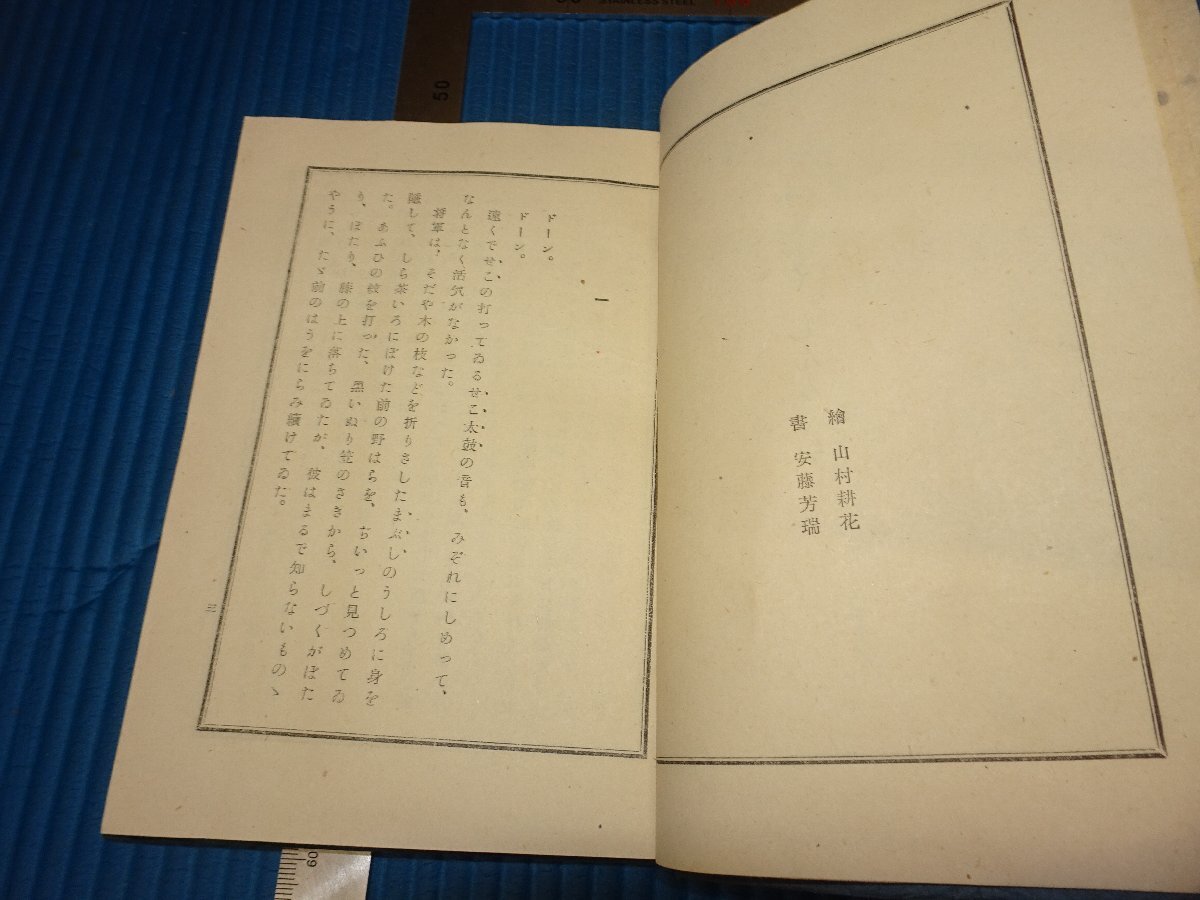 STAINLESS STEEL
50
繪 山村耕花
書 安藤芳瑞
一
ドーン。
ドーン。
遠くでせこの打ってゐるせこ太鼓の音も、みぞれにしめって、
なんとなく活気がなかった。
将軍は、そだや木の枝などを折りさしたまぶしのうしろに身を
隠して、しら茶いろにぼけた前の野はらを、ぢいっと見つめてゐ
た。あふひの紋を打った、黒いぬり笠のさきから、しづくがぼた
り、ぼたり、膝の上に落ちてゐたが、彼はまるで知らないものゝ
やうに、たゞ前のはうをにらみ續けてゐた。
三
60